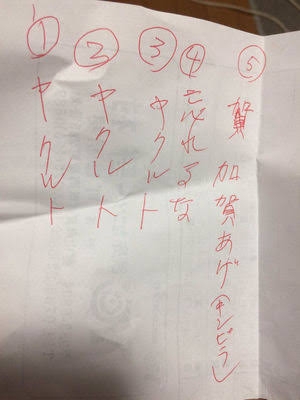 ① ヤクルト
② ヤクルト
③ ヤクルト
④ 忘れるな
⑤ 加賀あげ(キンピラ)